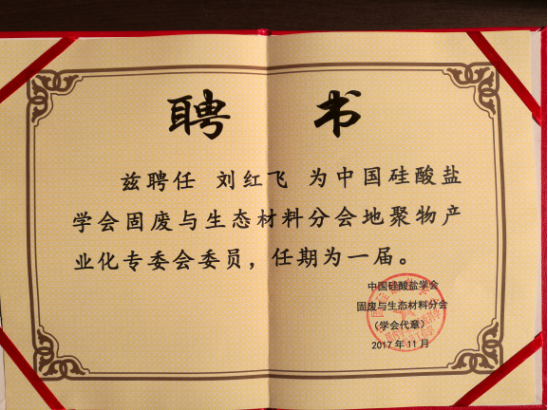 聘 书
兹聘任 刘红飞 为中国硅酸盐
学会固废与生态材料分会地聚物产
业化专委会委员，任期为一届。
中国硅酸盐学会
固废与生态材料分会
（学会代章）
2017年11月